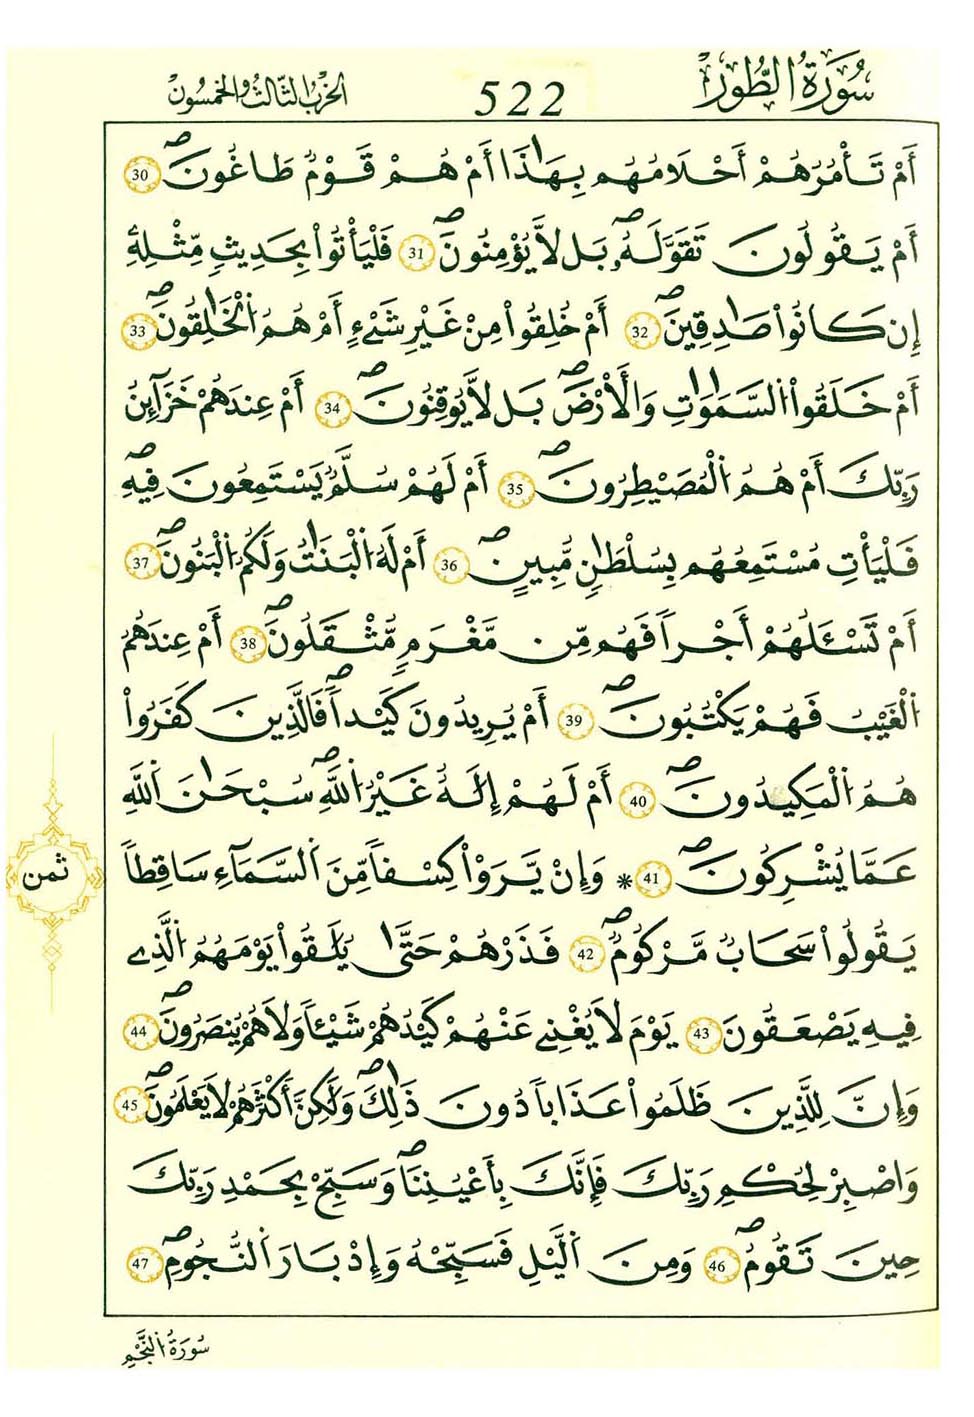 سُورَةُ الطُّورِ
522
الحزب الثالث والخمسون
أَمْ تَأْمُرُهُمْ أَحْلَامُهُم بِهَٰذَا أَمْ هُمْ قَوْمٌ طَاغُونَۖ 30
أَمْ يَقُولُونَ تَقَوَّلَهُۥۖ بَل لَّا يُؤْمِنُونَۖ 31 فَلْيَأْتُواْ بِحَدِيثٍ مِّثْلِهِۦٓ
إِن كَانُواْ صَٰدِقِينَۖ 32 أَمْ خُلِقُواْ مِنْ غَيْرِ شَےْءٍ أَمْ هُمُ اُلْخَٰلِقُونَۖ 33
أَمْ خَلَقُواْ اُلسَّمَٰوَٰتِ وَالْأَرْضَۖ بَل لَّا يُوقِنُونَۖ 34 أَمْ عِندَهُمْ خَزَآئِنُ
رَبِّكَ أَمْ هُمُ اُلْمُصَيْطِرُونَۖ 35 أَمْ لَهُمْ سُلَّمٌ يَسْتَمِعُونَ فِيهِۖ
فَلْيَأْتِ مُسْتَمِعُهُم بِسُلْطَٰنٍ مُّبِينٍۖ 36 أَمْ لَهُ اُلْبَنَٰتُ وَلَكُمُ اُلْبَنُونَۖ 37
أَمْ تَسْـَٔلُهُمْ أَجْراً فَهُم مِّن مَّغْرَمٍ مُّثْقَلُونَۖ 38 أَمْ عِندَهُمُ
اُلْغَيْبُ فَهُمْ يَكْتُبُونَۖ 39 أَمْ يُرِيدُونَ كَيْداًۖ فَالَّذِينَ كَفَرُواْ
هُمُ اُلْمَكِيدُونَۖ 40 أَمْ لَهُمْ إِلَٰهٌ غَيْرُ اُللَّهِۖ سُبْحَٰنَ اَللَّهِ
عَمَّا يُشْرِكُونَۖ 41 * وَإِنْ يَّرَوْاْ كِسْفاً مِّنَ اَلسَّمَآءِ سَاقِطاً
يَقُولُواْ سَحَابٌ مَّرْكُومٌۖ 42 فَذَرْهُمْ حَتَّىٰ يُلَٰقُواْ يَوْمَهُمُ اُلَّذِے
فِيهِ يَصْعَقُونَ 43 يَوْمَ لَا يُغْنِے عَنْهُمْ كَيْدُهُمْ شَيْـٔاً وَلَا هُمْ يُنصَرُونَۖ 44
وَإِنَّ لِلَّذِينَ ظَلَمُواْ عَذَاباً دُونَ ذَٰلِكَۖ وَلَٰكِنَّ أَكْثَرَهُمْ لَا يَعْلَمُونَۖ 45
وَاصْبِرْ لِحُكْمِ رَبِّكَ فَإِنَّكَ بِأَعْيُنِنَاۖ وَسَبِّحْ بِحَمْدِ رَبِّكَ
حِينَ تَقُومُۖ 46 وَمِنَ اَلَّيْلِ فَسَبِّحْهُ وَإِدْبَارَ اَلنُّجُومِۖ 47
ثمن
سُورَةُ اُلنَّجْمِ